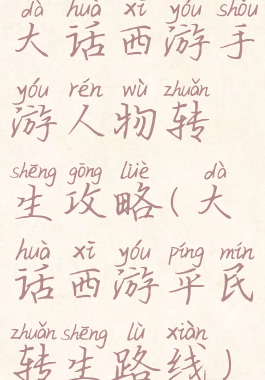 dà huà xī yóu shǒu
大话西游手
yóu rén wù zhuǎn
游人物转
shēng gōng lüè dà
生攻略(大
huà xī yóu píng mín
话西游平民
zhuǎn shēng lù xiàn
转生路线)